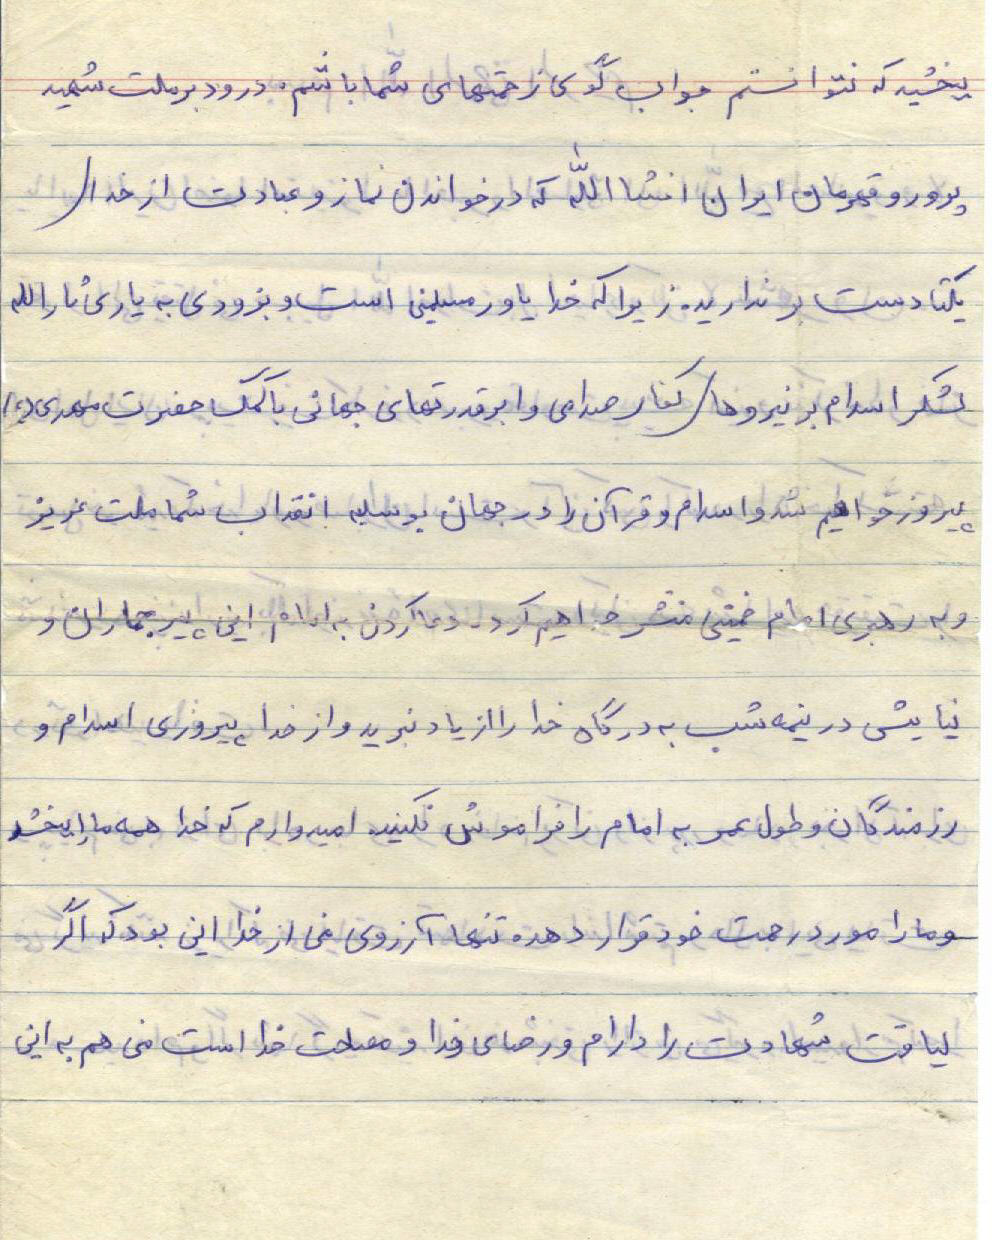 ببخشید که نتوانستم جواب گوی زحمتهای شما باشم. درود بر ملت شهید
پرور و قهرمان ایران انشا اللّه که در خواندن نماز و عبادت از خدای
یکتا دست بر ندارید. زیرا که خدا یاور مسلمین است و بزودی به یاری
لشکر اسلام بر نیروهای کفار صدامی و ابرقدرتهای جهانی با کمک حضرت مهدی (ع)
پیروز خواهیم شد و اسلام و قرآن را در جهان بوسیله انقلاب شما ملت عزیز
و به رهبری امام خمینی منتشر خواهیم کرد. دعا کردن به امام این پیر جماران و
نیایش در نیمه شب به درگاه خدا را از یاد نبرید و از خدا پیروزی اسلام و
رزمندگان و طول عمر به امام را فراموش نکنید. امیدوارم که خدا همه ما را ببخشد
و ما را مورد رحمت خود قرار دهد. تنها آرزوی من از خدا این بود که اگر
لیاقت شهادت را دارم و رضای خدا و مصلحت خدا است من هم به این